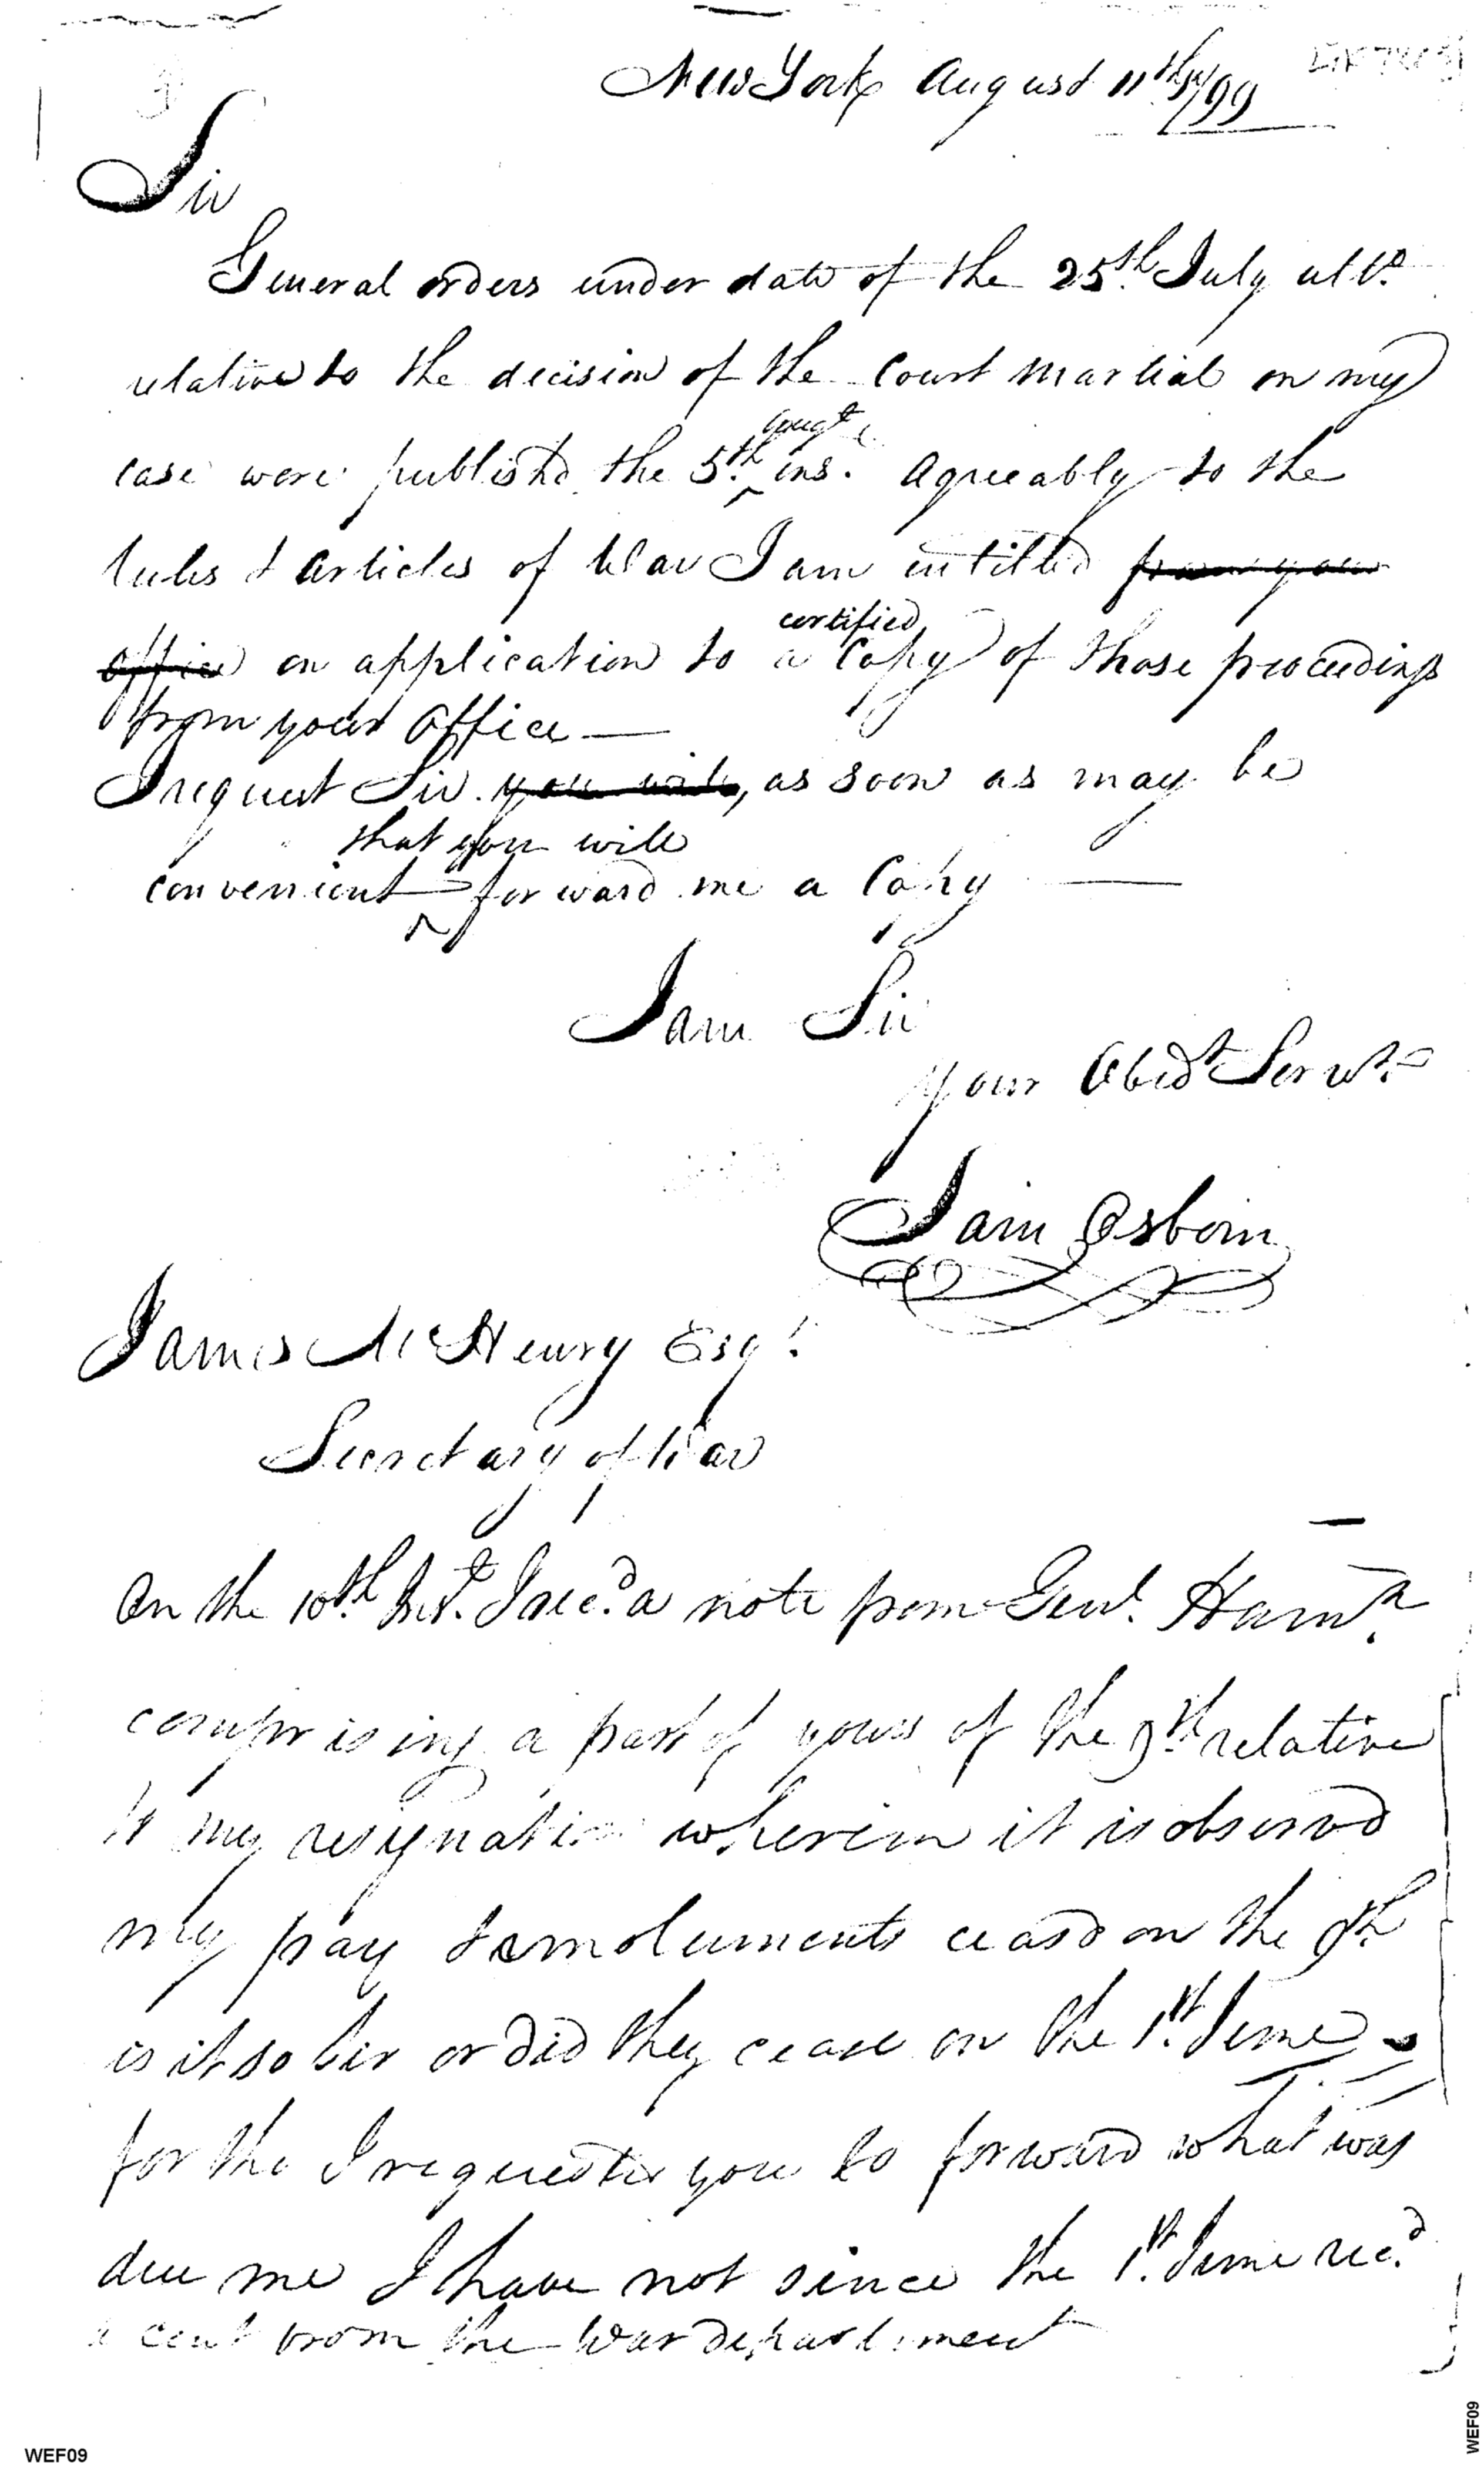 New York August 11th 1799
Sir
General orders under date of the 25th. July ulto.
relative to the decision of the Court Martial on my
Augt
case were publishd the 5th. ins. Agreeably to the
rules & Articles of War I am entitled from your
certified
office on application to a Copy of those proceedings
from your Office —
I request Sir you will, as soon as may be
that you will
convenient forward me a Copy —
I am Sir
Your Obedt Servt.
Sam Osborn
James McHenry Esqr.
Secretary of War
On the 10th. Inst. I recd. a note from Genl. Hamn.
comprising a part of yours of the 9th relative
to my resignation wherein it is observd
my pay & emoluments ceasd on the 9th.
is it so Sir or did they cease on the 1st. June
for the I requested you to forward what was
due me I have not since the 1st. June recd.
a cent from the War department
WEF09
WEF09